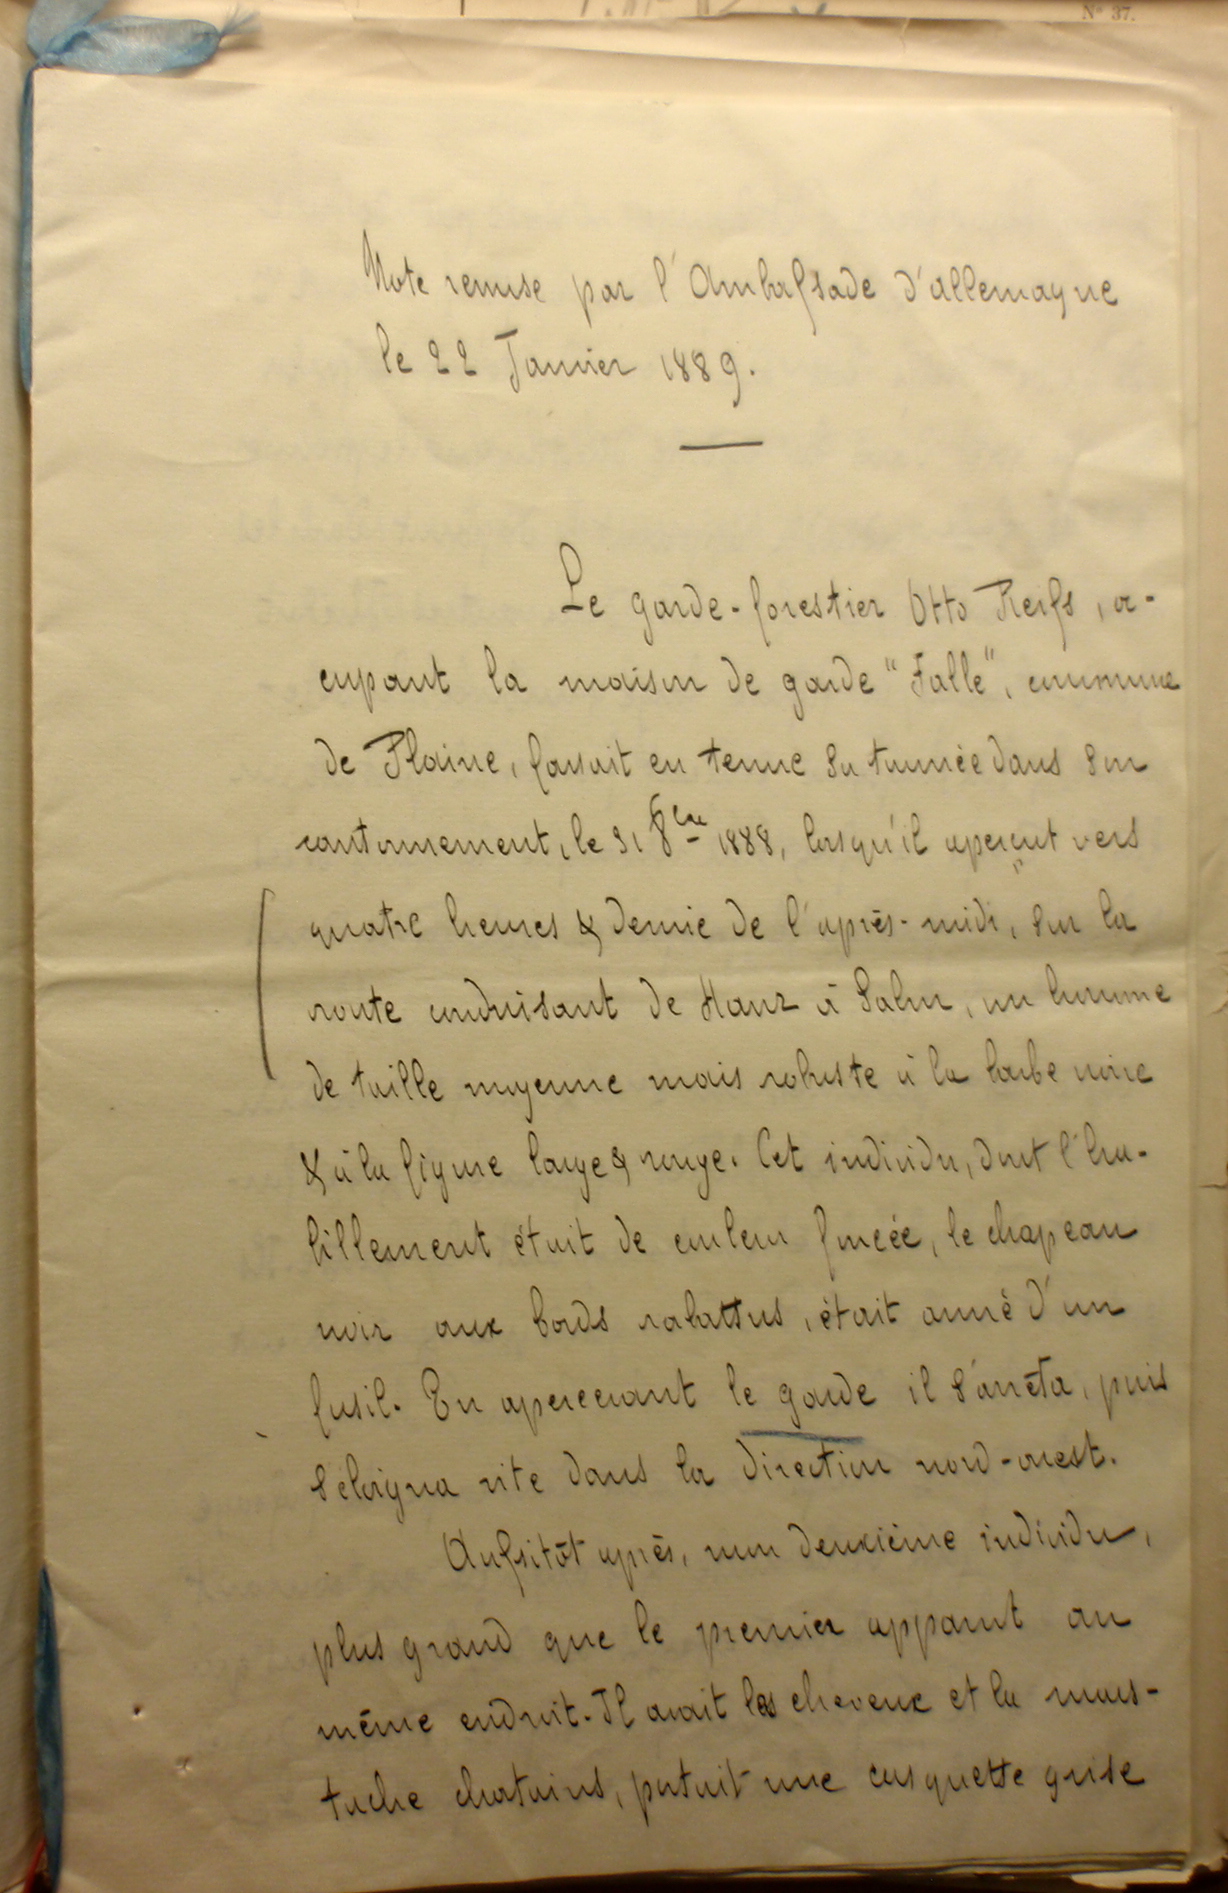 N° 37.
Note remise par l'Ambassade d'Allemagne
le 22 Janvier 1889.
Le garde-forestier Otto Reiss, oc-
cupant la maison de garde "Falle", commune
de Plaine, faisait en tenue sa tournée dans son
cantonnement, le 31 8bre 1888, lorsqu'il aperçut vers
quatre heures & demie de l'après-midi, sur la
route conduisant de Hanz à Salm, un homme
de taille moyenne mais robuste à la barbe noire
& à la figure large & rouge. Cet individu, dont l'ha-
billement était de couleur foncée, le chapeau
noir aux bords rabattus, était armé d'un
fusil. En apercevant le garde il s'arrêta, puis
s'éloigna vite dans la direction nord-ouest.
Aussitôt après, un deuxième individu,
plus grand que le premier apparut au
même endroit. Il avait les cheveux et la mous-
tache chatains, portait une casquette grise